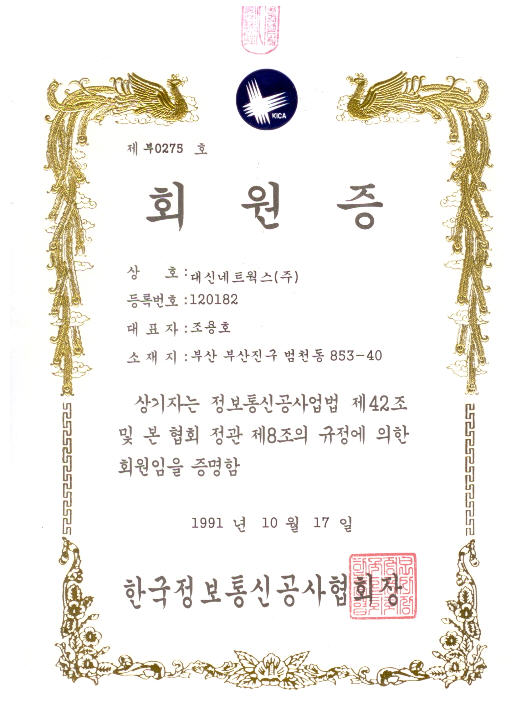 KICA
제 부0275 호
회 원 증
상 호 : 대신네트웍스(주)
등록번호 : 120182
대 표 자 : 조용호
소 재 지 : 부산 부산진구 범천동 853-40
상기자는 정보통신공사업법 제42조
및 본 협회 정관 제8조의 규정에 의한
회원임을 증명함
1991 년 10 월 17 일
한국정보통신공사협회장